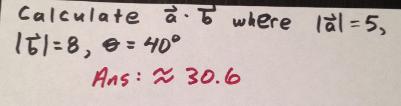 Calculate a⃗ · b⃗ where |a⃗|=5,
|b⃗|=8, θ=40°
Ans: ≈ 30.6